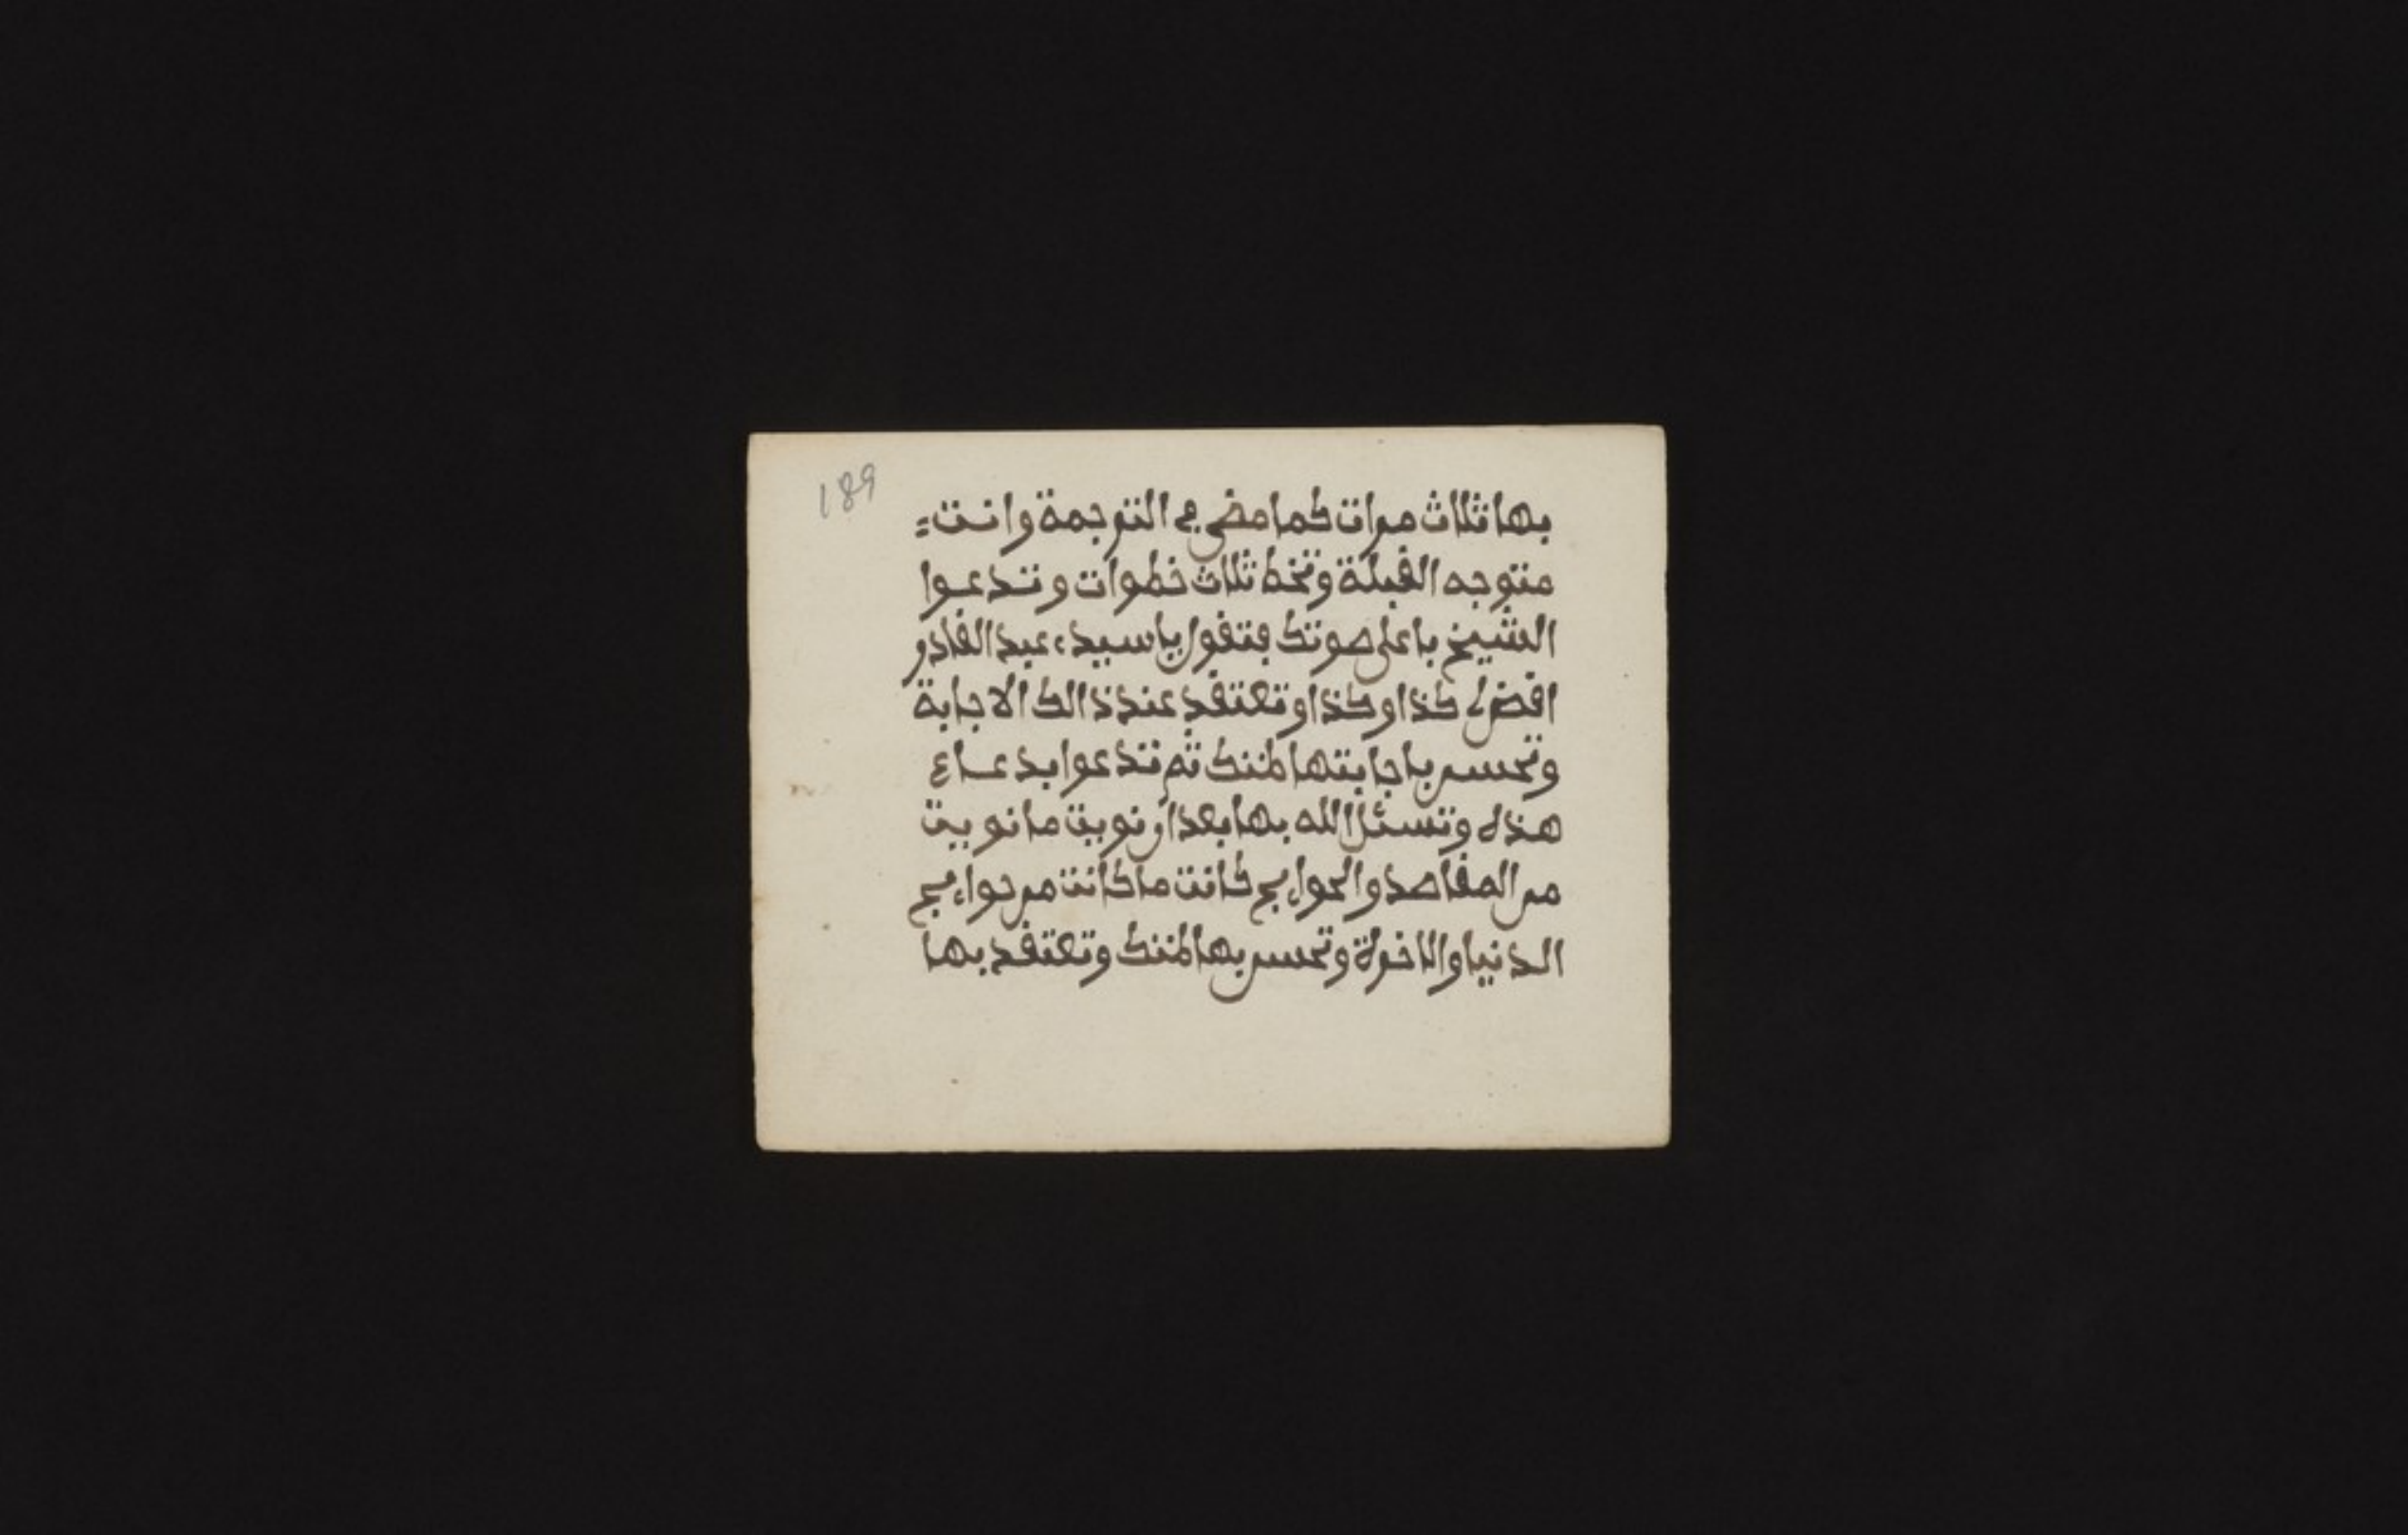 189
بها ثلاث مرات كما مضى في الترجمة وانت
متوجه القبلة وتخط ثلاث خطوات وتدعوا
الشيخ باعلى صوتك فتقول يا سيدي عبد القادر
اقض لي كذا وكذا وتعتقد عند ذالك الاجابة
وتحسن باجابتها ظنك ثم تدعوا بدعاء
هذه وتسئل الله بها بعد ان نويت ما نويت
من المقاصد والحوايج كانت ما كانت من حوايج
الدنيا والاخرة وتحسن بها ظنك وتعتقد بها